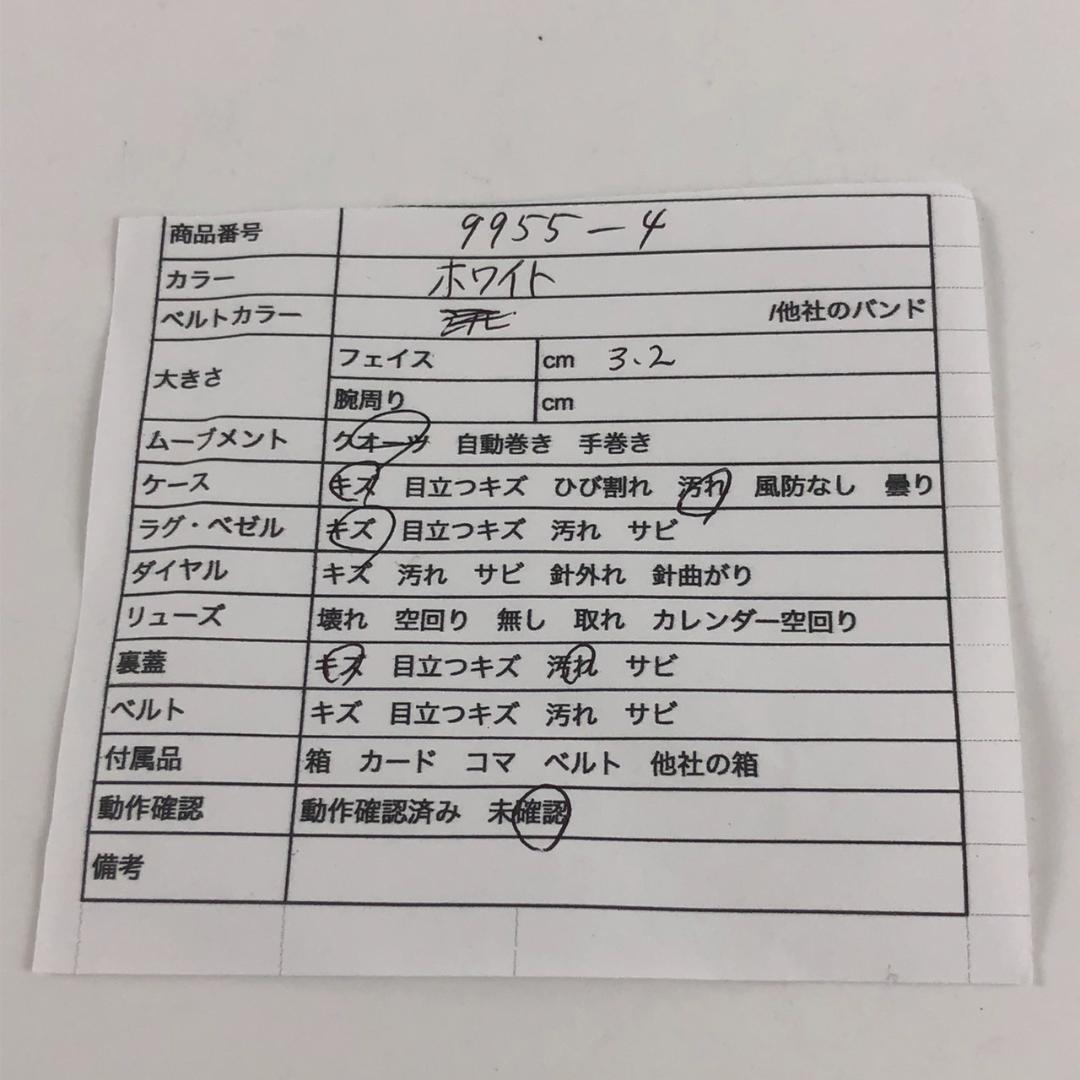 商品番号 9955-4
カラー ホワイト
ベルトカラー /他社のバンド
大きさ フェイス cm 3.2
腕周り cm
ムーブメント クオーツ 自動巻き 手巻き
ケース キズ 目立つキズ ひび割れ 汚れ 風防なし 曇り
ラグ・ベゼル キズ 目立つキズ 汚れ サビ
ダイヤル キズ 汚れ サビ 針外れ 針曲がり
リューズ 壊れ 空回り 無し 取れ カレンダー空回り
裏蓋 キズ 目立つキズ 汚れ サビ
ベルト キズ 目立つキズ 汚れ サビ
付属品 箱 カード コマ ベルト 他社の箱
動作確認 動作確認済み 未確認
備考